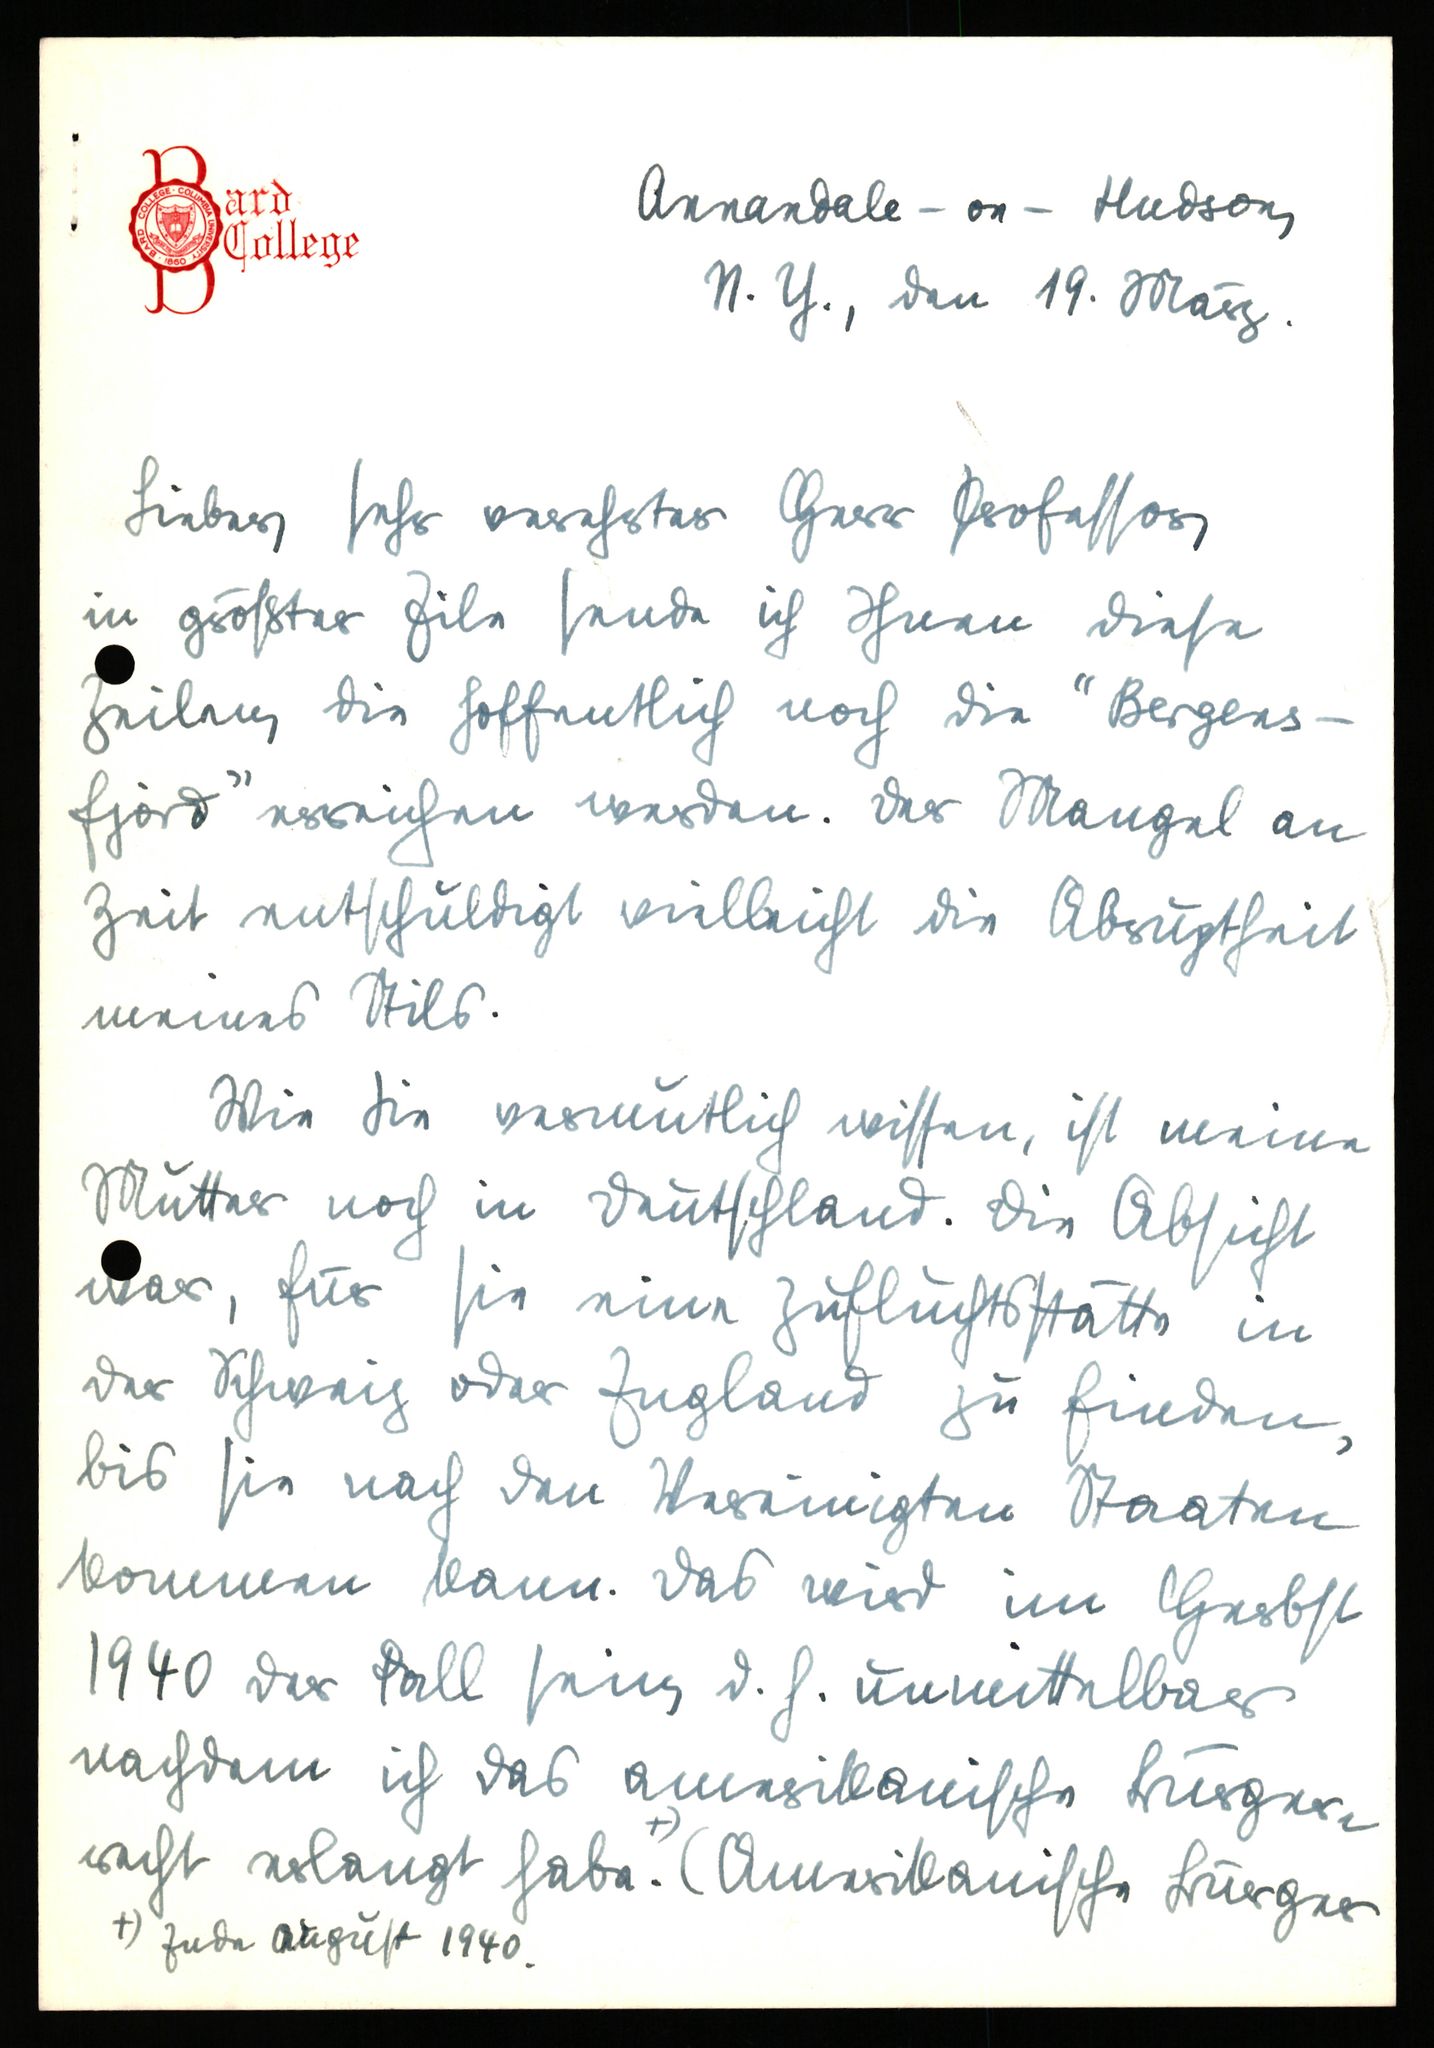 Bard
College
BARD COLLEGE · COLUMBIA UNIVERSITY · 1860
Annandale-on-Hudson,
N. Y., den 19. März.
Lieber, sehr verehrter Herr Professor,
in größter Eile sende ich Ihnen diese
Zeilen, die hoffentlich noch die "Bergens-
fjord" erreichen werden. Der Mangel an
Zeit entschuldigt vielleicht die Abruptheit
meines Stils.
Wie Sie vermutlich wissen, ist meine
Mutter noch in Deutschland. Die Absicht
war, für sie eine Zufluchtsstätte in
der Schweiz oder England zu finden,
bis sie nach den Vereinigten Staaten
kommen kann. Das wird im Herbst
1940 der Fall sein, d. h. unmittelbar
nachdem ich das amerikanische Bürger-
recht erlangt habe.+) (Amerikanische Bürger
+) Ende August 1940.